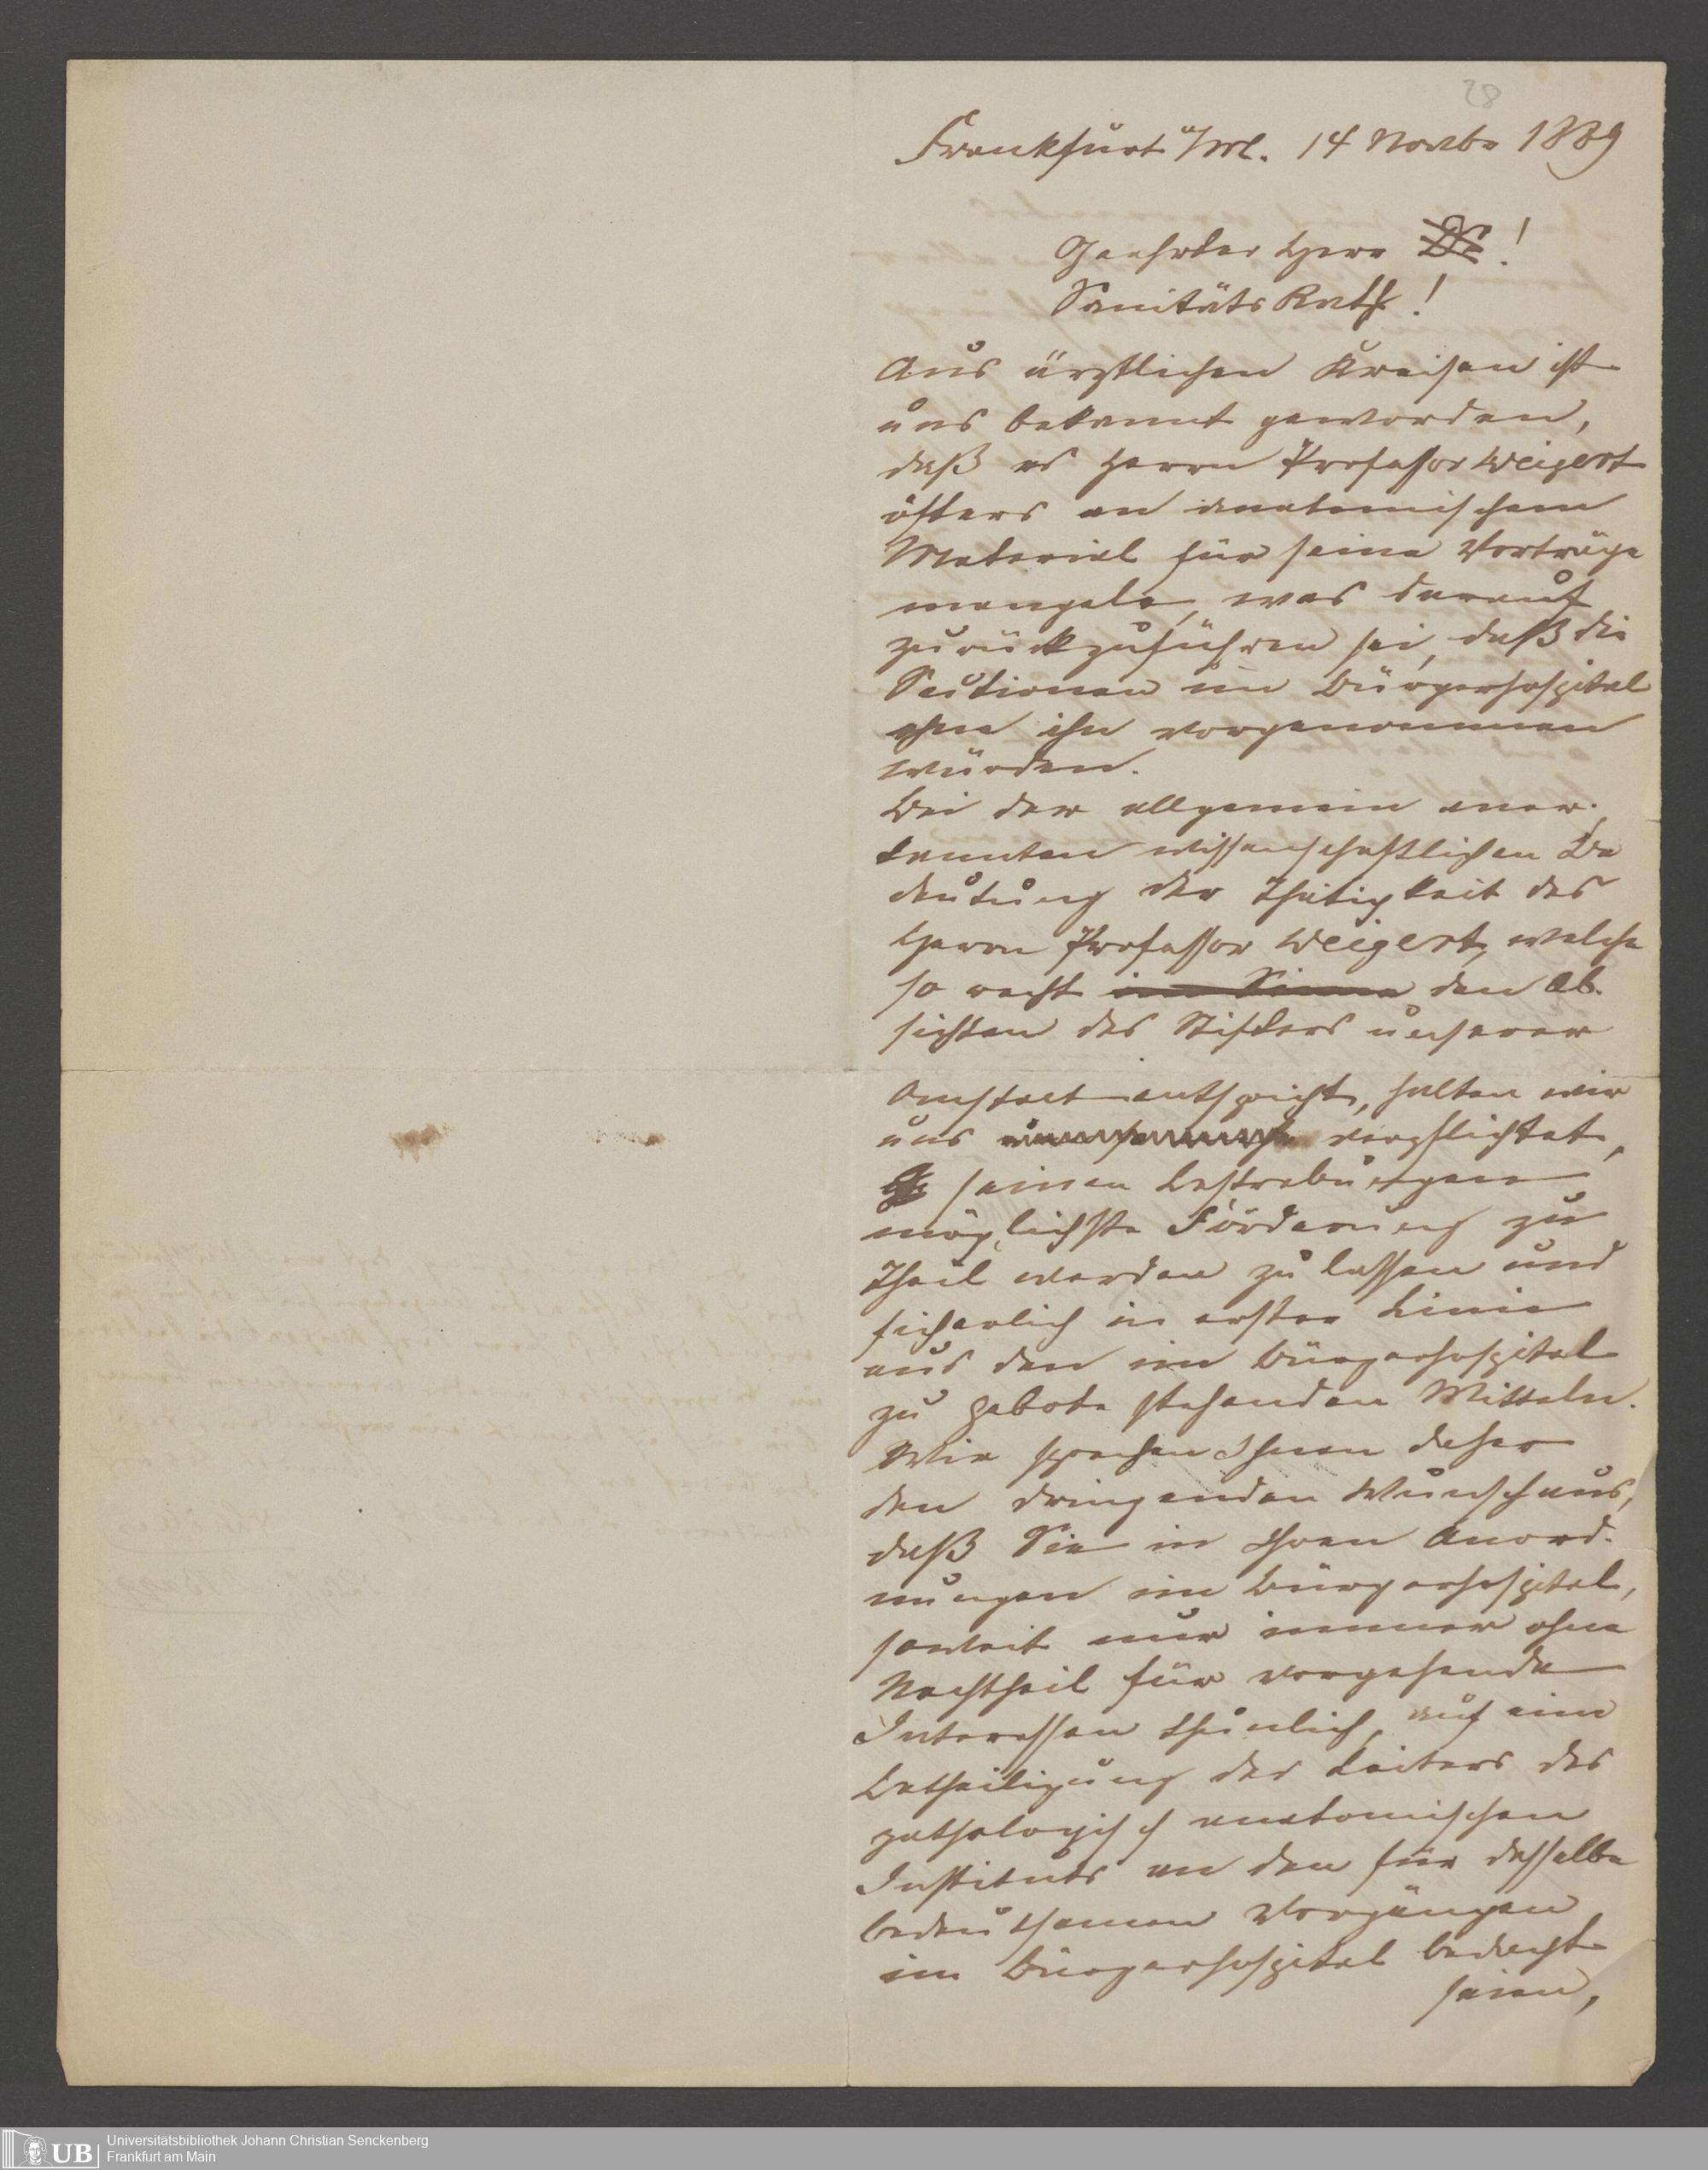 28
Frankfurt a/M. 14 Novbr 1889
Geehrter Herr Dr!
Sanitäts Rath!
Aus ärztlichen Kreisen ist
uns bekannt geworden,
daß es Herrn Professor Weigert
öfters an anatomischem
Material für seine Vorträge
mangele, was darauf
zurückzuführen sei, daß die
Sectionen im Bürgerhospital
ohne ihn vorgenommen
würden.
Bei der allgemein aner-
kannten wissenschaftlichen Be
deutung der Thätigkeit des
Herrn Professor Weigert, welche
so recht im Sinne den Ab-
sichten des Stifters unserer
Anstalt entspricht, halten wir
uns verpflichtet,
seinen Bestrebungen
möglichste Förderung zu
Theil werden zu lassen und
sicherlich in erster Linie
aus den im Bürgerhospital
zu gebote stehenden Mitteln.
Wir sprechen Ihnen daher
den dringenden Wunsch aus,
daß Sie in Ihren Anord-
nungen im Bürgerhospital,
soweit nur immer ohne
Nachtheil für vorgehende
Interessen thunlich, auf eine
Betheiligung des Leiters des
pathologisch anatomischen
Instituts an den für dasselbe
bedeutsamen Vorgängen
im Bürgerhospital bedacht
seien,
UB
Universitätsbibliothek Johann Christian Senckenberg
Frankfurt am Main